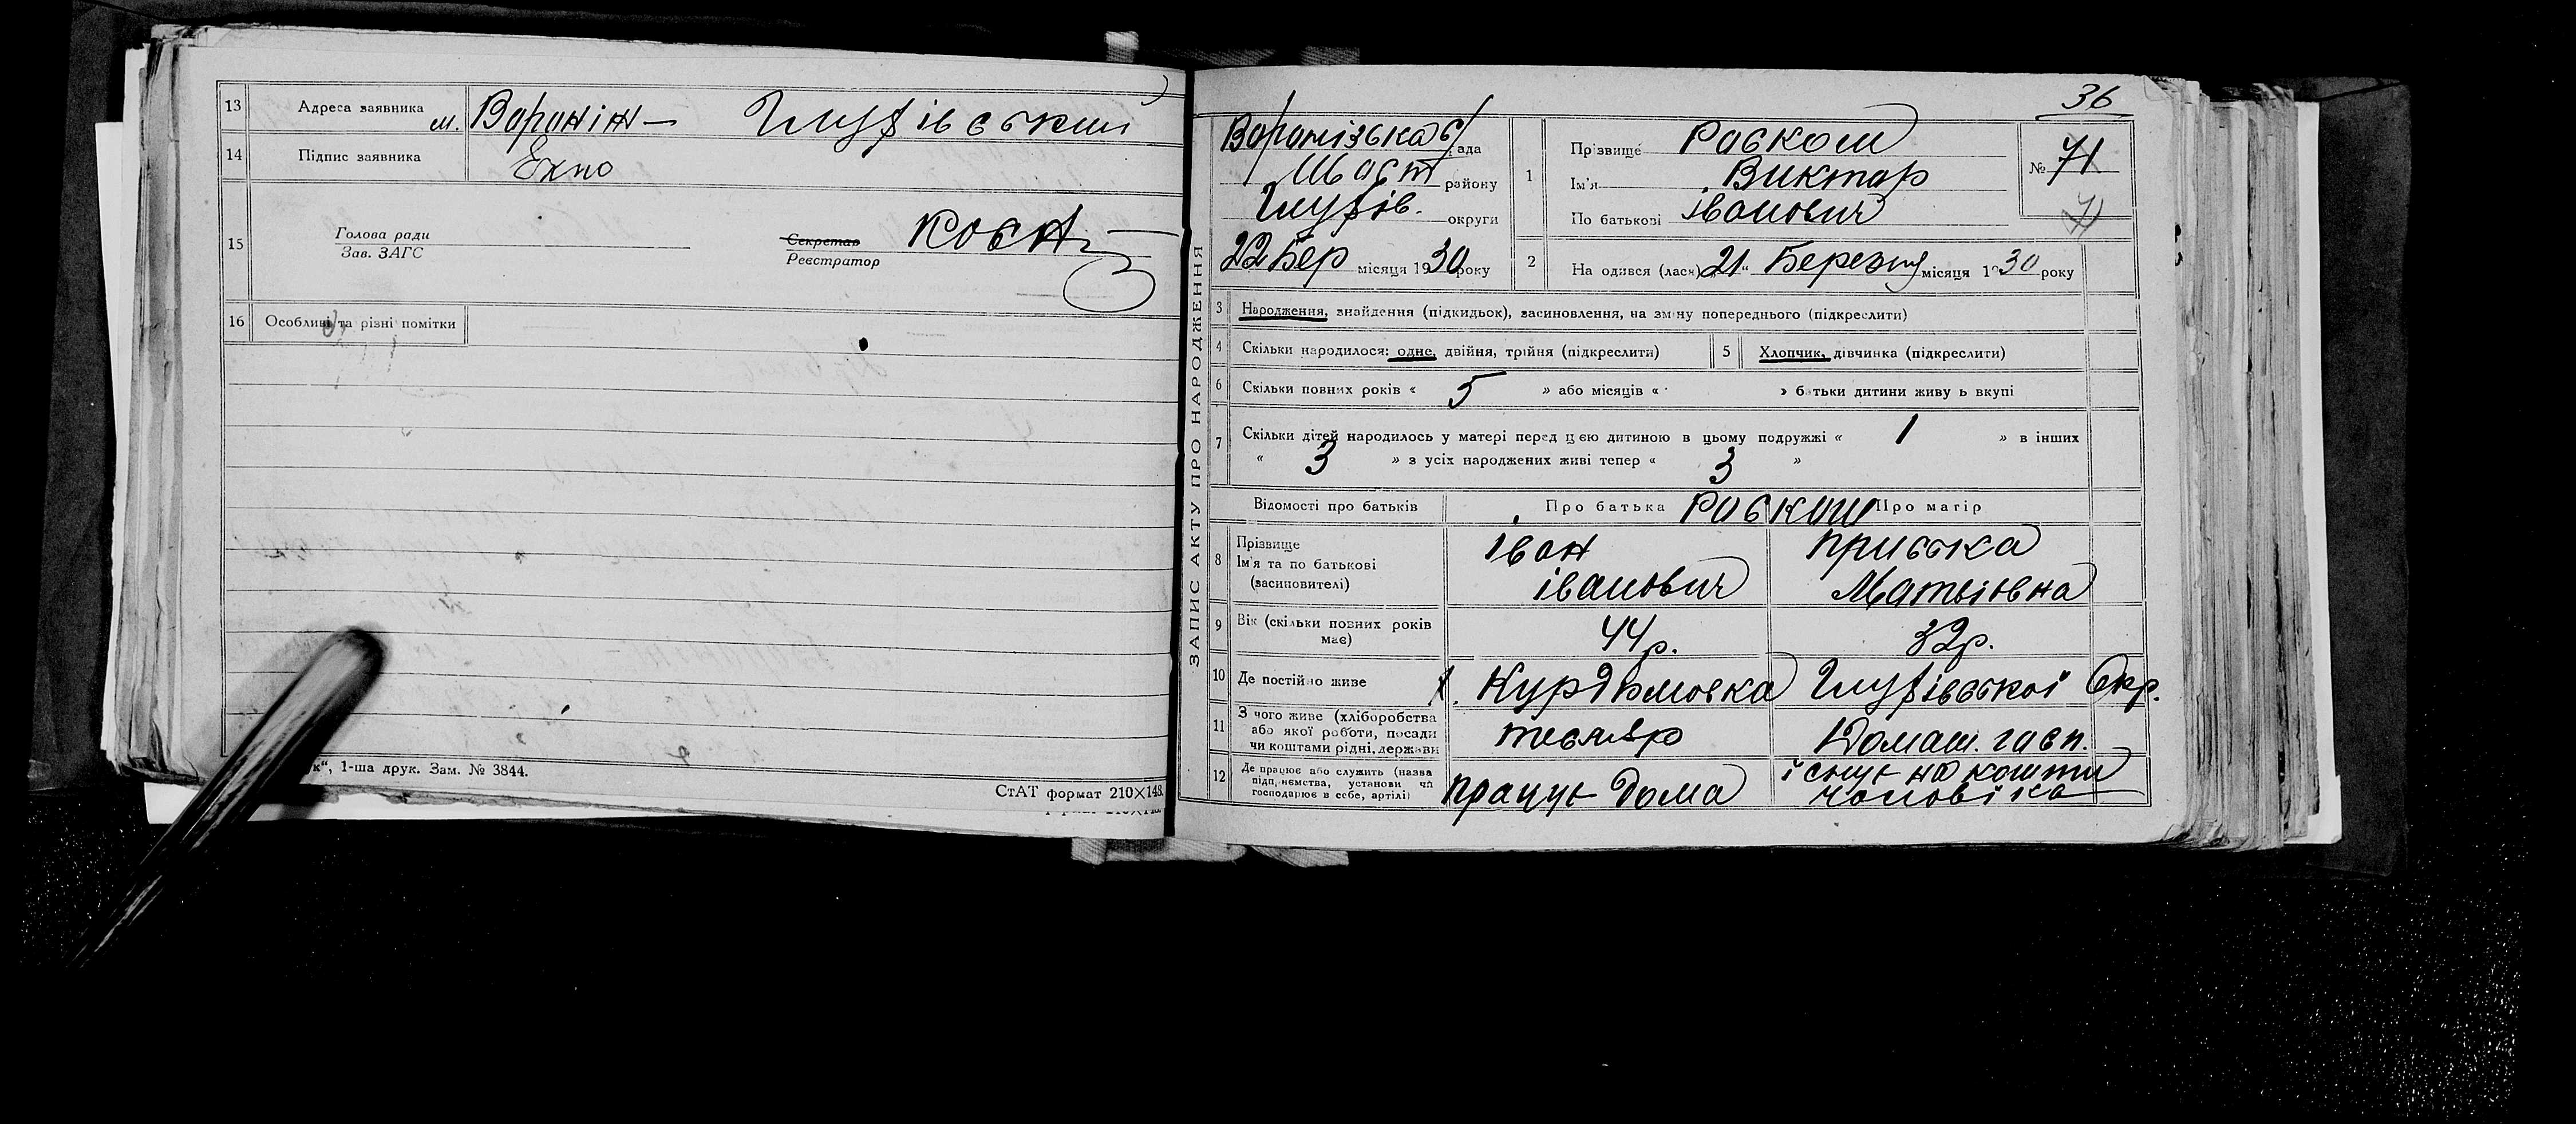 13 Адреса заявника м. Воронiж — Глухiвськ
14 Підпис заявника
15 Голова ради
Зав. ЗАГС
Секретар
Реєстратор
16 Особливі та різні помітки
1-ша друк. Зам. № 3844.
СтАТ формат 210×148.
36
ЗАПИС АКТУ ПРО НАРОДЖЕННЯ
Воронізька с/рада
Шост району
Глухів. округи
22 Бер місяця 1930 року
1 Прізвище Роскош
Ім'я Виктор
По батькові Іванович
№ 71
71
2 Народився (лася) „21“ Березня місяця 1930 року
3 Народження, знайдення (підкидьок), засиновлення, на зміну попереднього (підкреслити)
4 Скільки народилося: одне, двійня, трійня (підкреслити)
5 Хлопчик, дівчинка (підкреслити)
6 Скільки повних років « 5 » або місяців « » батьки дитини живуть вкупі
7 Скільки дітей народилось у матері перед цією дитиною в цьому подружжі « 1 » в інших
« 3 » з усіх народжених живі тепер « 3 »
Відомості про батьків Про батька Роскош Про матір
8 Прізвище
Ім'я та по батькові
(засиновителі)
Іван
Іванович
Приська
Матвіївна
9 Вік (скільки повних років має) 44 р. 32 р.
10 Де постійно живе Глухівської Окр.
11 З чого живе (хліборобства
або якої роботи, посади
чи коштами рідні, держави
тесляр
Домаш. госп.
12 Де працює або служить (назва
підприємства, установи чи
господарює в себе, артілі)
працує дома
існує на кошти
чоловіка